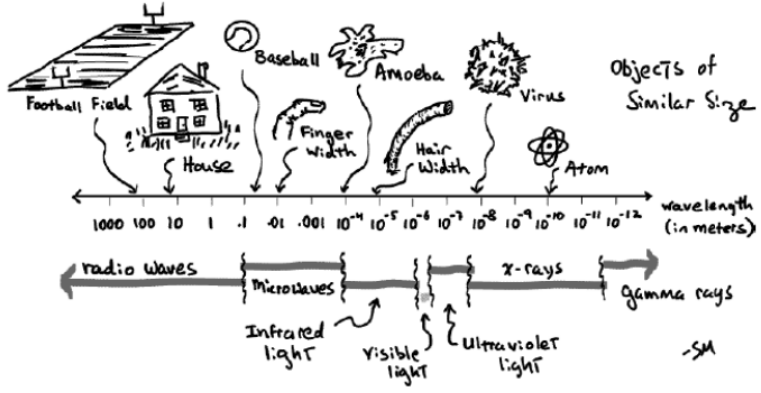 Football Field
House
Baseball
Finger
Width
Amoeba
Hair
Width
Virus
Atom
Objects of
Similar Size
1000 100 10 1 .1 .01 .001 10⁻⁴ 10⁻⁵ 10⁻⁶ 10⁻⁷ 10⁻⁸ 10⁻⁹ 10⁻¹⁰ 10⁻¹¹ 10⁻¹²
wavelength
(in meters)
radio waves
microwaves
x-rays
gamma rays
Infrared
light
Visible
light
Ultraviolet
light
-SM